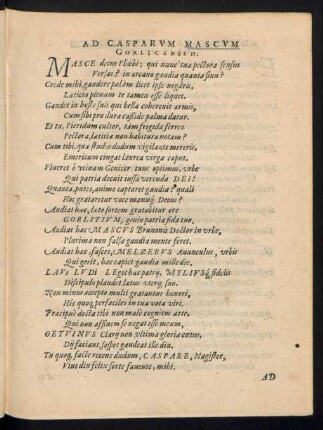 AD CASPARVM MASCVM
GORLICENSEM.
MASCE decus Phœbi; qui nunc tua pectora sensus
Versat? in arcano gaudia quanta sinu?
Crede mihi, gaudere palàm licet ipse negâris,
Lætitia plenum te tamen esse liquet.
Gaudet in hoste suis qui bella cohercuit armis,
Cum sibi pro dura casside palma datur.
Et tu, Pieridum cultor, tàm frigida ferres
Pectora, lætitiæ non habitura notam?
Cum tibi, quæ studio dudum vigilante mereris,
Emeritum cingat laurea virga caput.
Viveret ô utinam Genitor tuus optimus, vrbe
Qui patria docuit iussa verenda DEI!
Quanta, putes, animo captaret gaudia? quali
Hoc grataretur voce manuq; Decus?
Audiat hæc, læto sortem gratabitur ore
GORLITIVM, genio patria fida tuo.
Audiat hæc MASCVS Brunonis Doctor in vrbe,
Plurima non falsa gaudia mente feret.
Audiat hæc, fasces, MELZERVS Avunculus, vrbis
Qui gerit, hæc capiet gaudia mille die.
LAVS LVDI LEgot hæc patry, MYLIVSq; fidelis
Discipulo plandet lætus vterq; suo.
Non minus accepto multi gratantur honori,
Hic quoq; perfaciles in tua vota viri.
Præcipuè docta tibi non malè cognitus arte,
Qui non affinem se negat esse meum,
OETVINVS Clarynen vltima gloria cœtus,
Dij faciant, sospes gaudeat ille diu.
Tu quoq; facte recens dudum, CASPARE, Magister,
Vive diu felix sorte favente, mihi.
AD